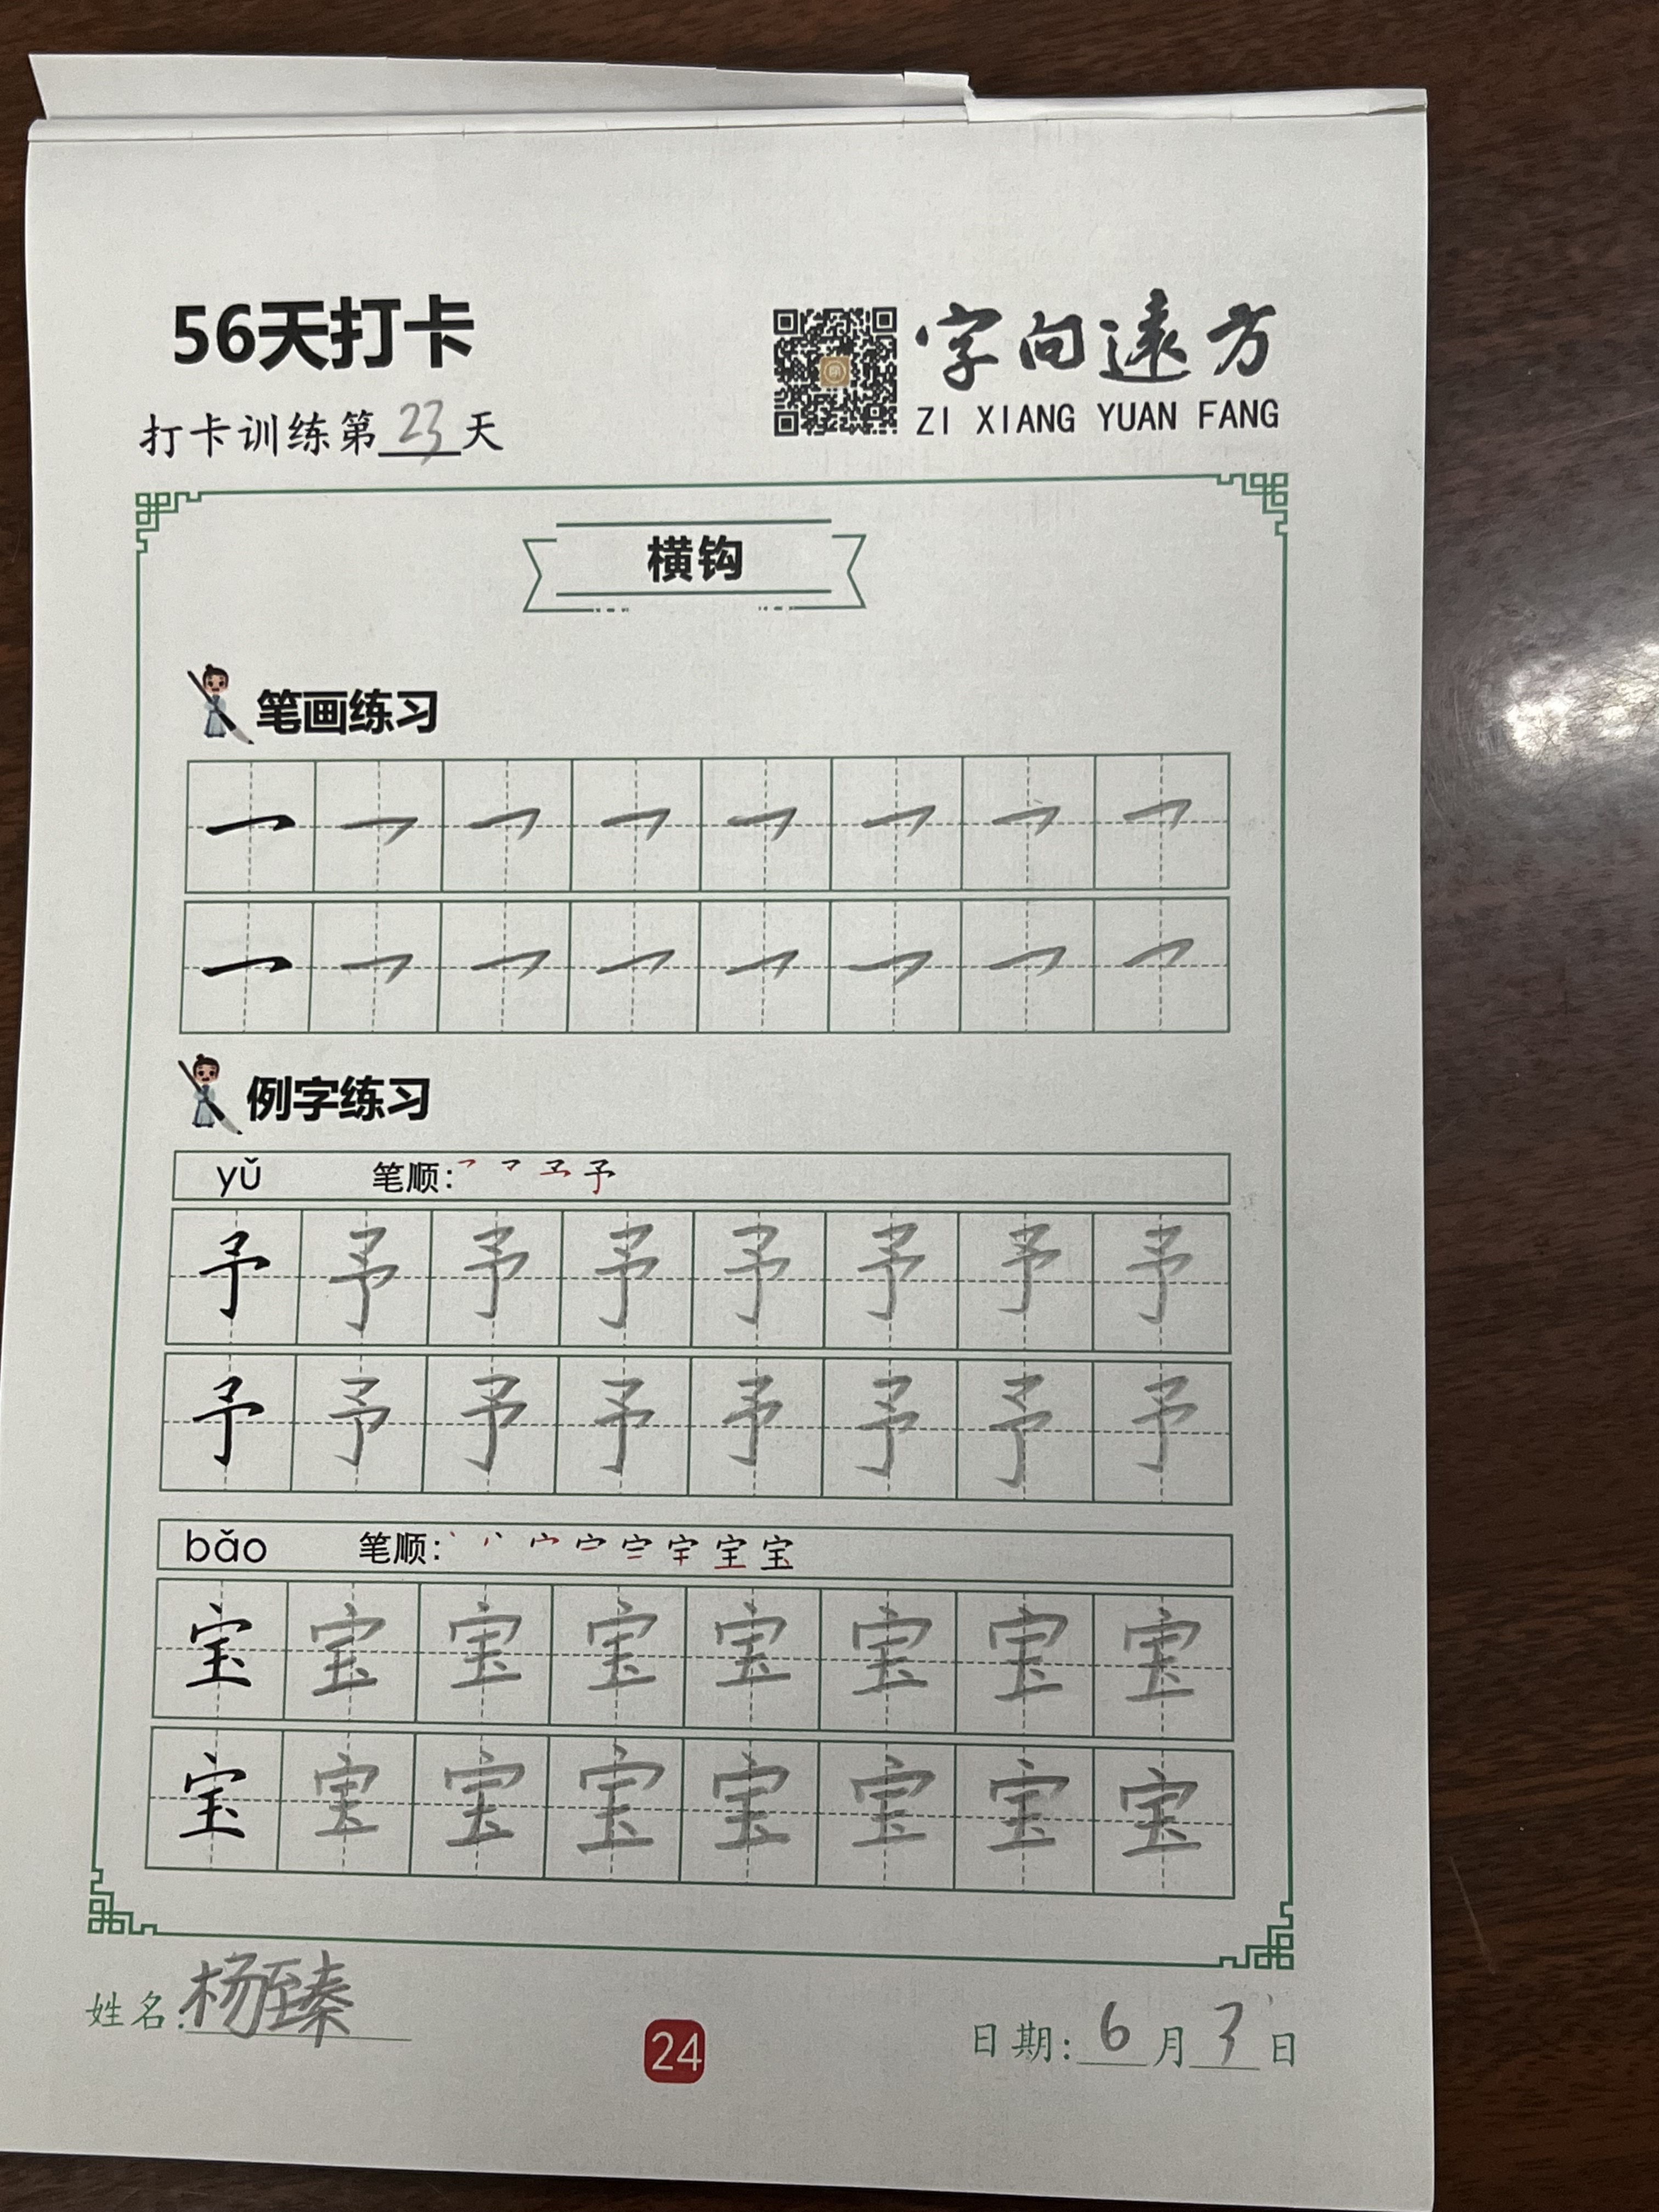 56天打卡
字向遠方
ZI XIANG YUAN FANG
打卡训练第23天
横钩
笔画练习
例字练习
yǔ 笔顺:
予 予 予 予 予 予 予 予
予 予 予 予 予 予 予 予
bǎo 笔顺:
宝 宝 宝 宝 宝 宝 宝 宝
宝 宝 宝 宝 宝 宝 宝 宝
姓名:杨臻
24
日期:6月3日